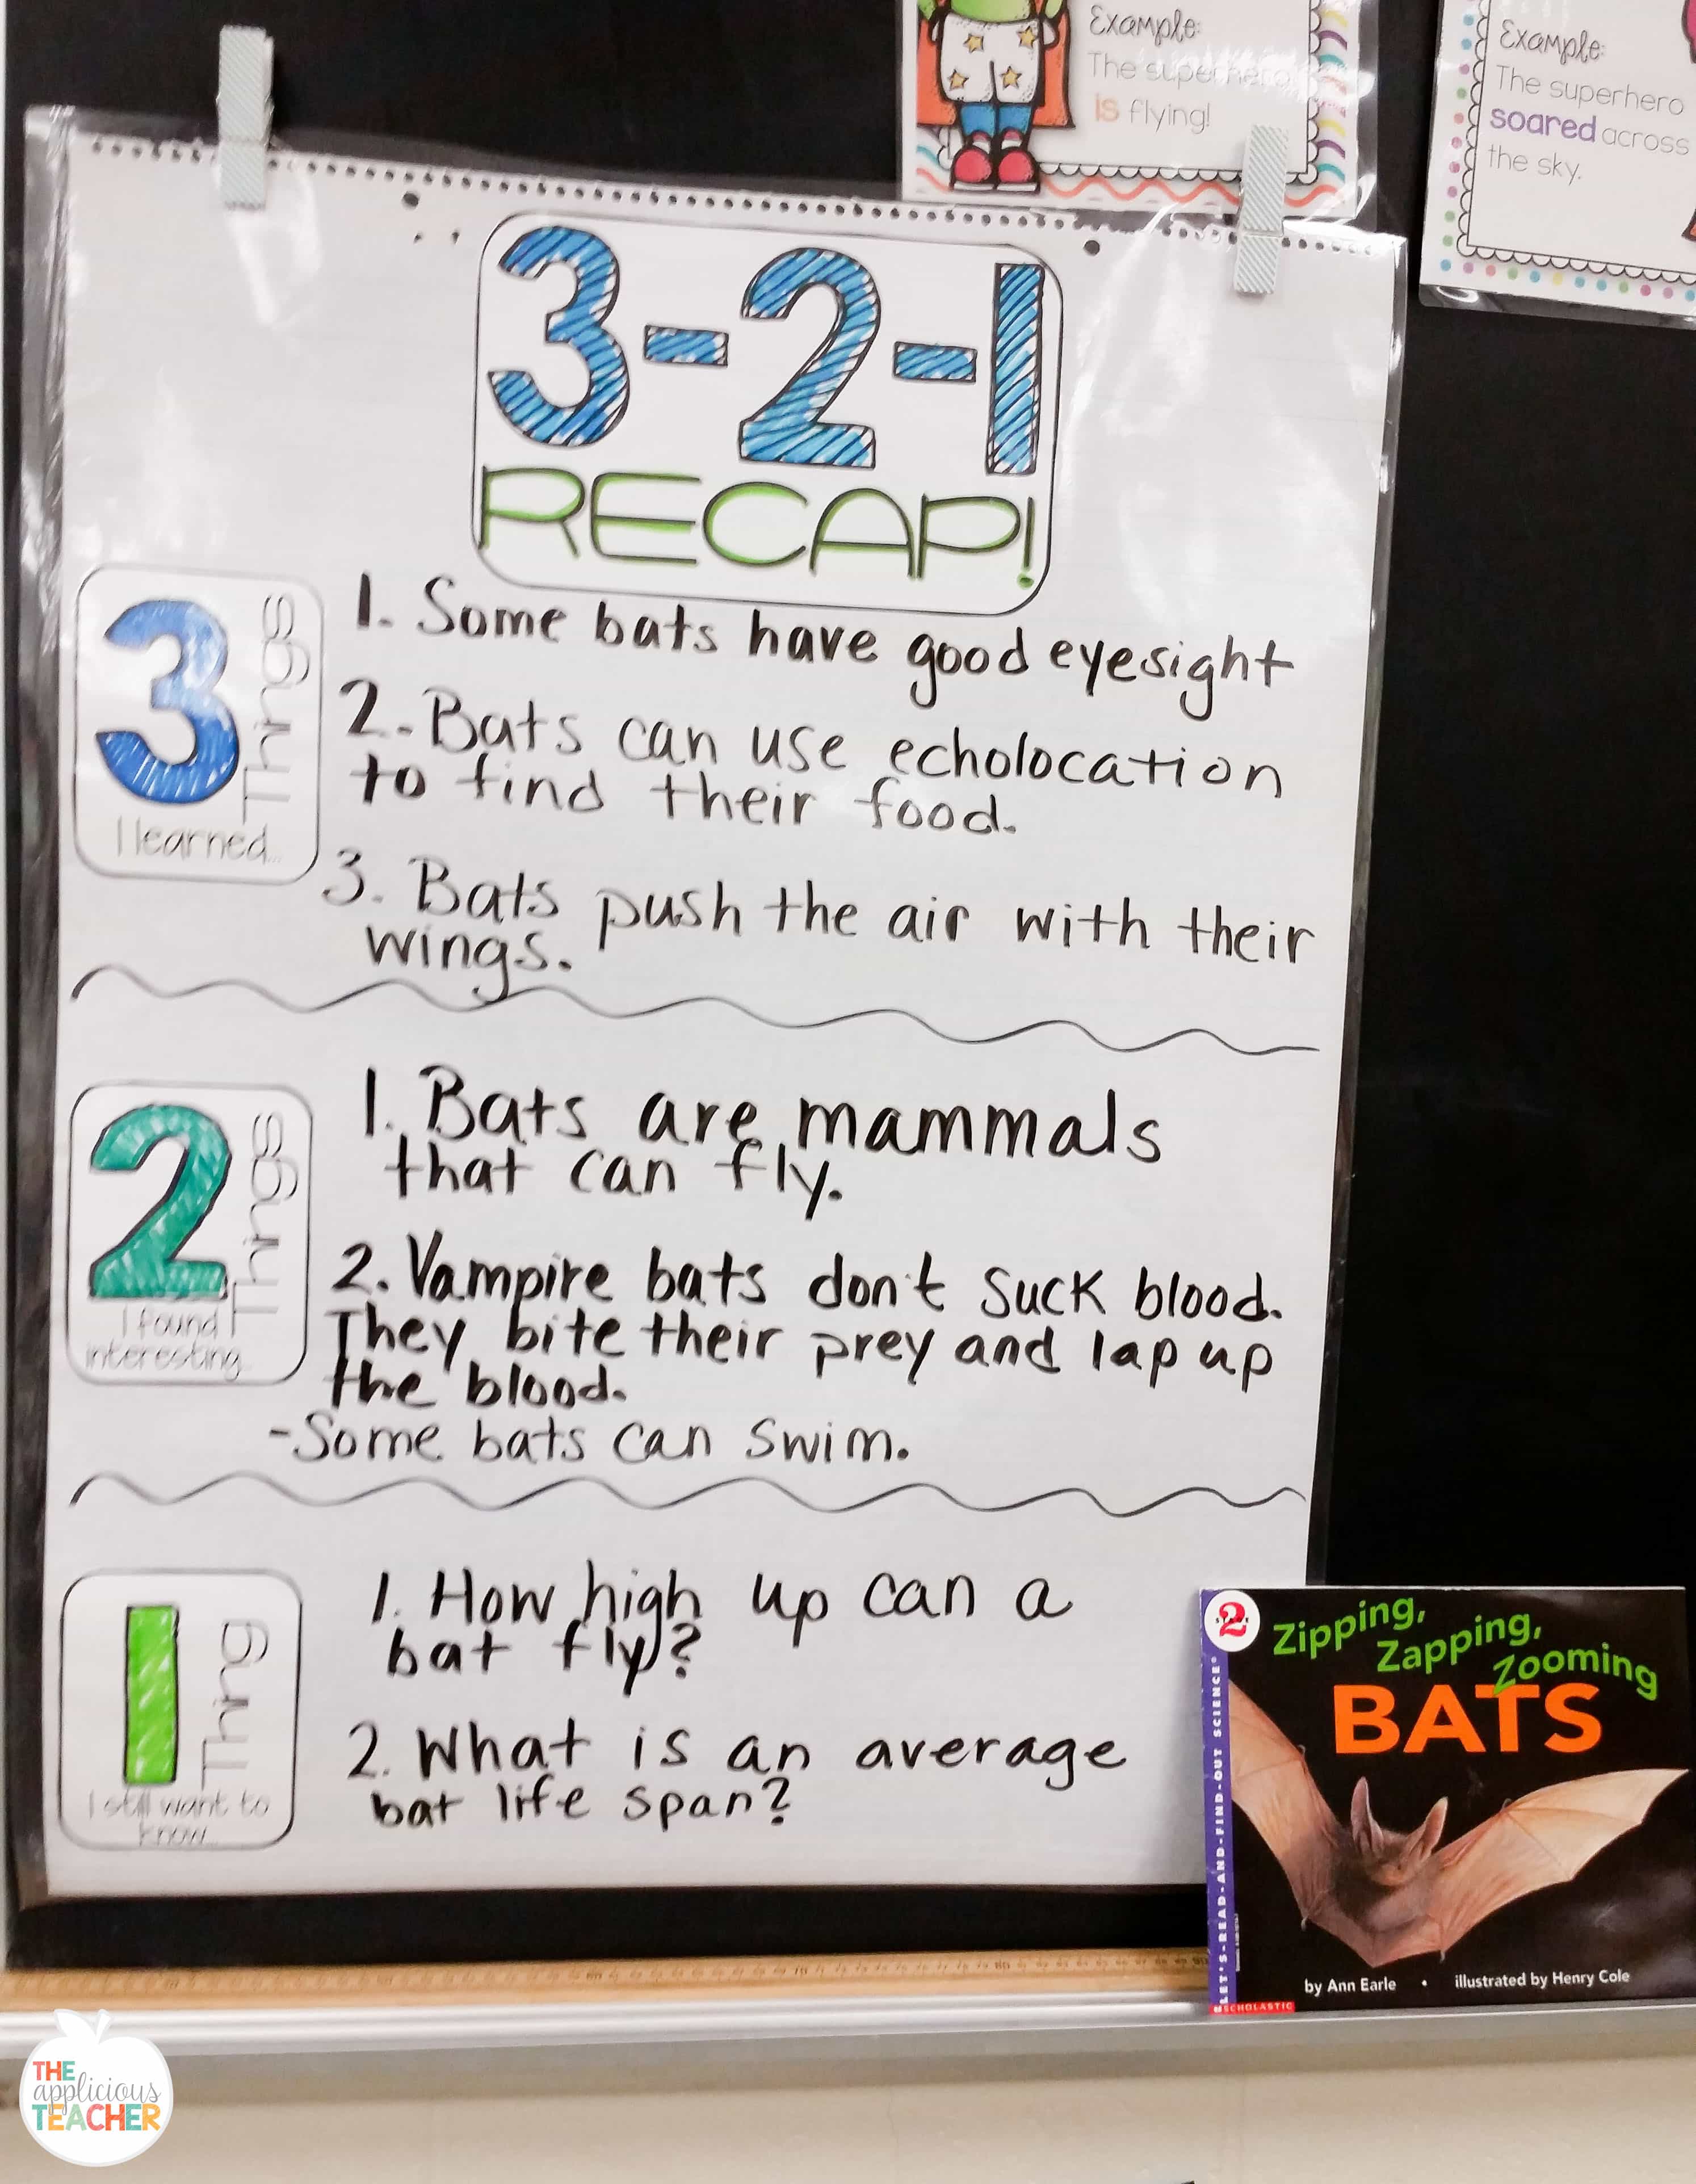 Example:
The superhero
is flying!
Example:
The superhero
soared across
the sky.
3-2-1
RECAP!
3 Things
I learned...
1. Some bats have good eyesight
2. Bats can use echolocation
to find their food.
3. Bats push the air with their
wings.
2 Things
I found
interesting...
1. Bats are mammals
that can fly.
2. Vampire bats don't suck blood.
They bite their prey and lap up
the blood.
-Some bats can swim.
1 Thing
I still want to
know...
1. How high up can a
bat fly?
2. What is an average
bat life span?
2
LET'S-READ-AND-FIND-OUT SCIENCE®
Zipping,
Zapping,
Zooming
BATS
by Ann Earle • illustrated by Henry Cole
SCHOLASTIC
THE
applicious
TEACHER